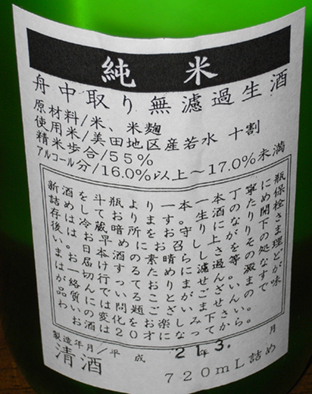 純米
舟中取り無濾過生酒
原材料/米、米麹
使用米/美田地区産若水 十割
精米歩合/55%
アルコール分/16.0%以上~17.0%未満
新酒を斗瓶より一本一本丁寧に瓶
詰めしております。生酒のため保
存は冷暗所をお守りになり開栓
後はお早めにお召し上がり下さ
い。日本酒の素晴らしさをそのま
まお届けするために濾過等の処理
は一切行っておりません。澱など
が絡んでいることがございますが
品質には問題ございませんので味
わいの変化をお楽しみ下さい。
お酒は20才になってから。
製造年月/平成 21年3.月
清酒 720mL詰め